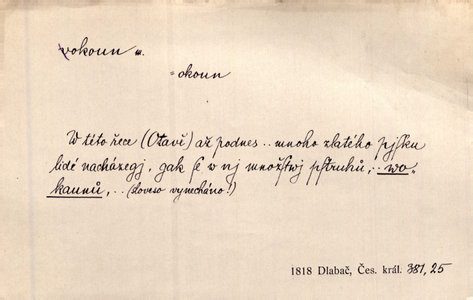 vokoun m.
= okoun
W této řece (Otavě) až podnes .. mnoho zlatého pjsku
lidé nacházegj, gak se w nj množstwj pstruhů, .. wo-
kaunů, .. (sloveso vynecháno!)
1818 Dlabač, Čes. král. 381, 25